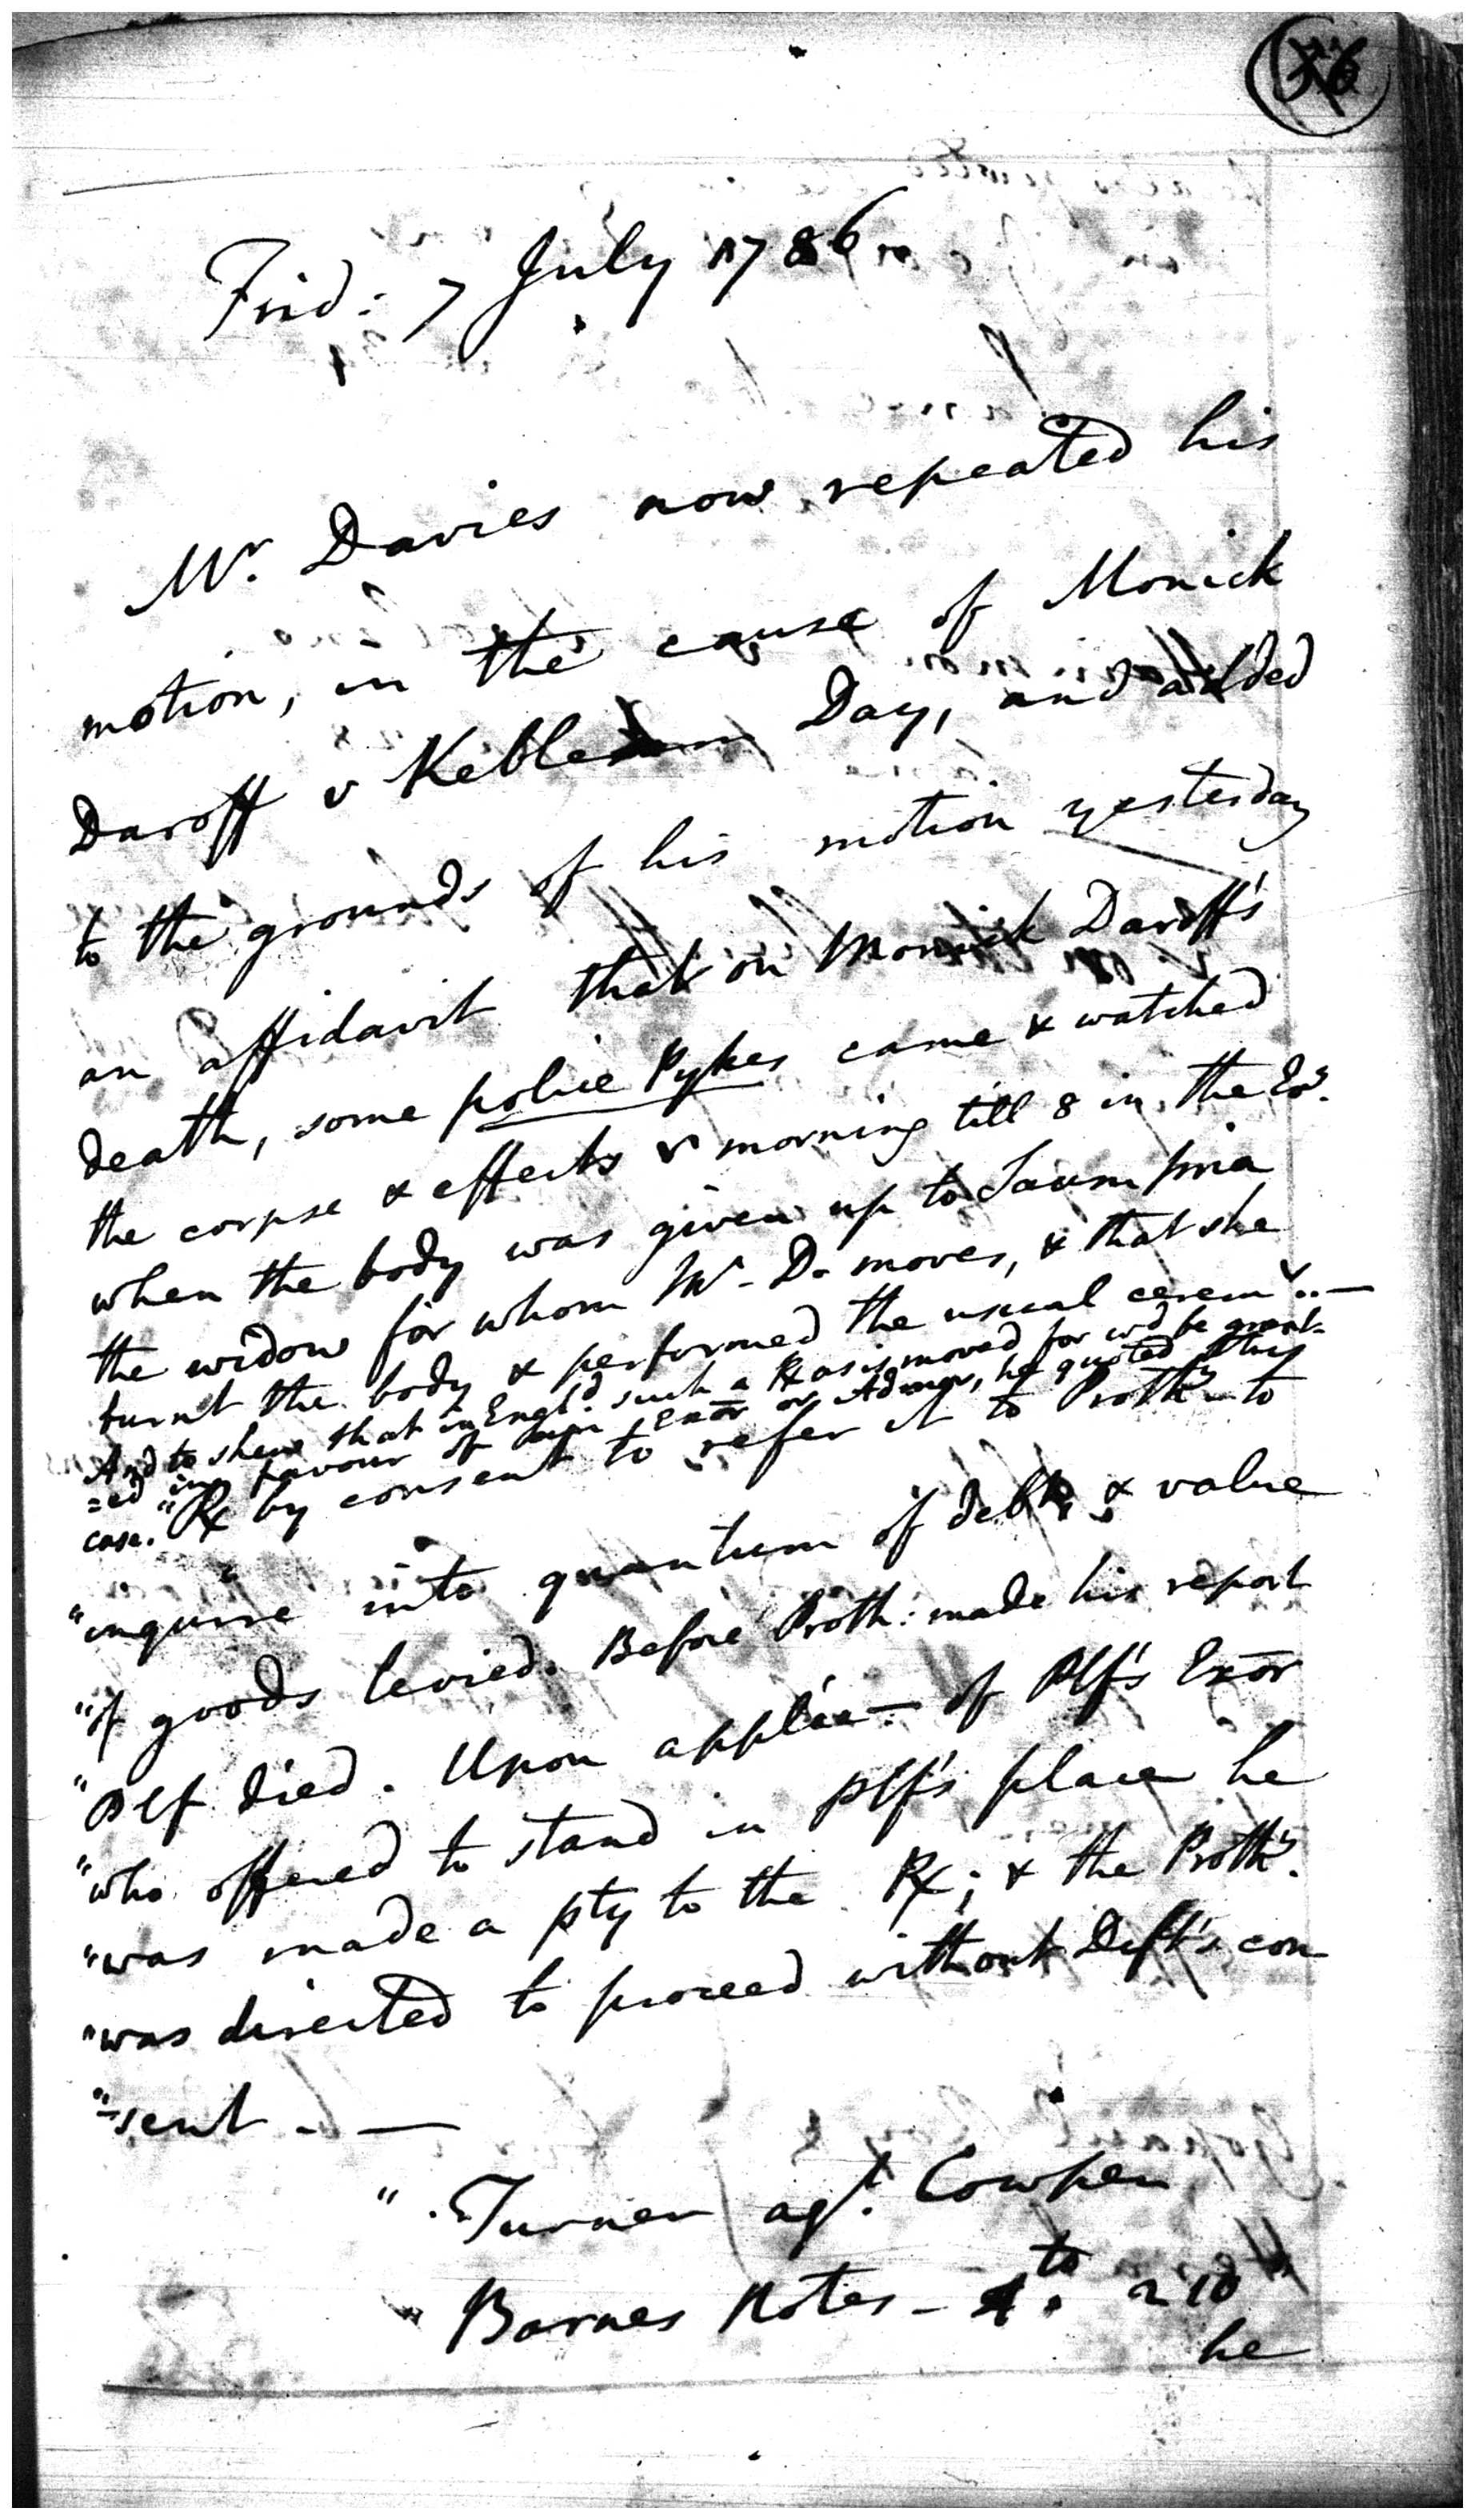 Frid: 7 July 1786
Mr. Davies now repeated his
motion, in the cause of Monick
Daroff v Keble Day, and added
to the grounds of his motion yesterday
an affidavit that on Monick Daroff's
death, some police Pykes came & watched
the corpse & effects morning till 8 in the Eve.
when the body was given up to
the widow for whom Mr. D. moves, & that she
burnt the body & performed the usual cerem..—
And to shew that in Engld. such a Rx as is moved for wd. be grant-
=ed in favour of an Exor or Admor, he quoted this
case. "Rx by consent to refer it to Prothy. to
"inquire into quantum of debt, & value
"of goods levied. Before Proth: made his report
"Plf died. Upon applicn. of Plf's Exor
"who offered to stand in plf's place he
"was made a pty to the Rx; & the Prothy.
"was directed to proceed without Deft's con
"-sent . —
" Turner agt. Cowper
" Barnes Notes - 4to. 210
he